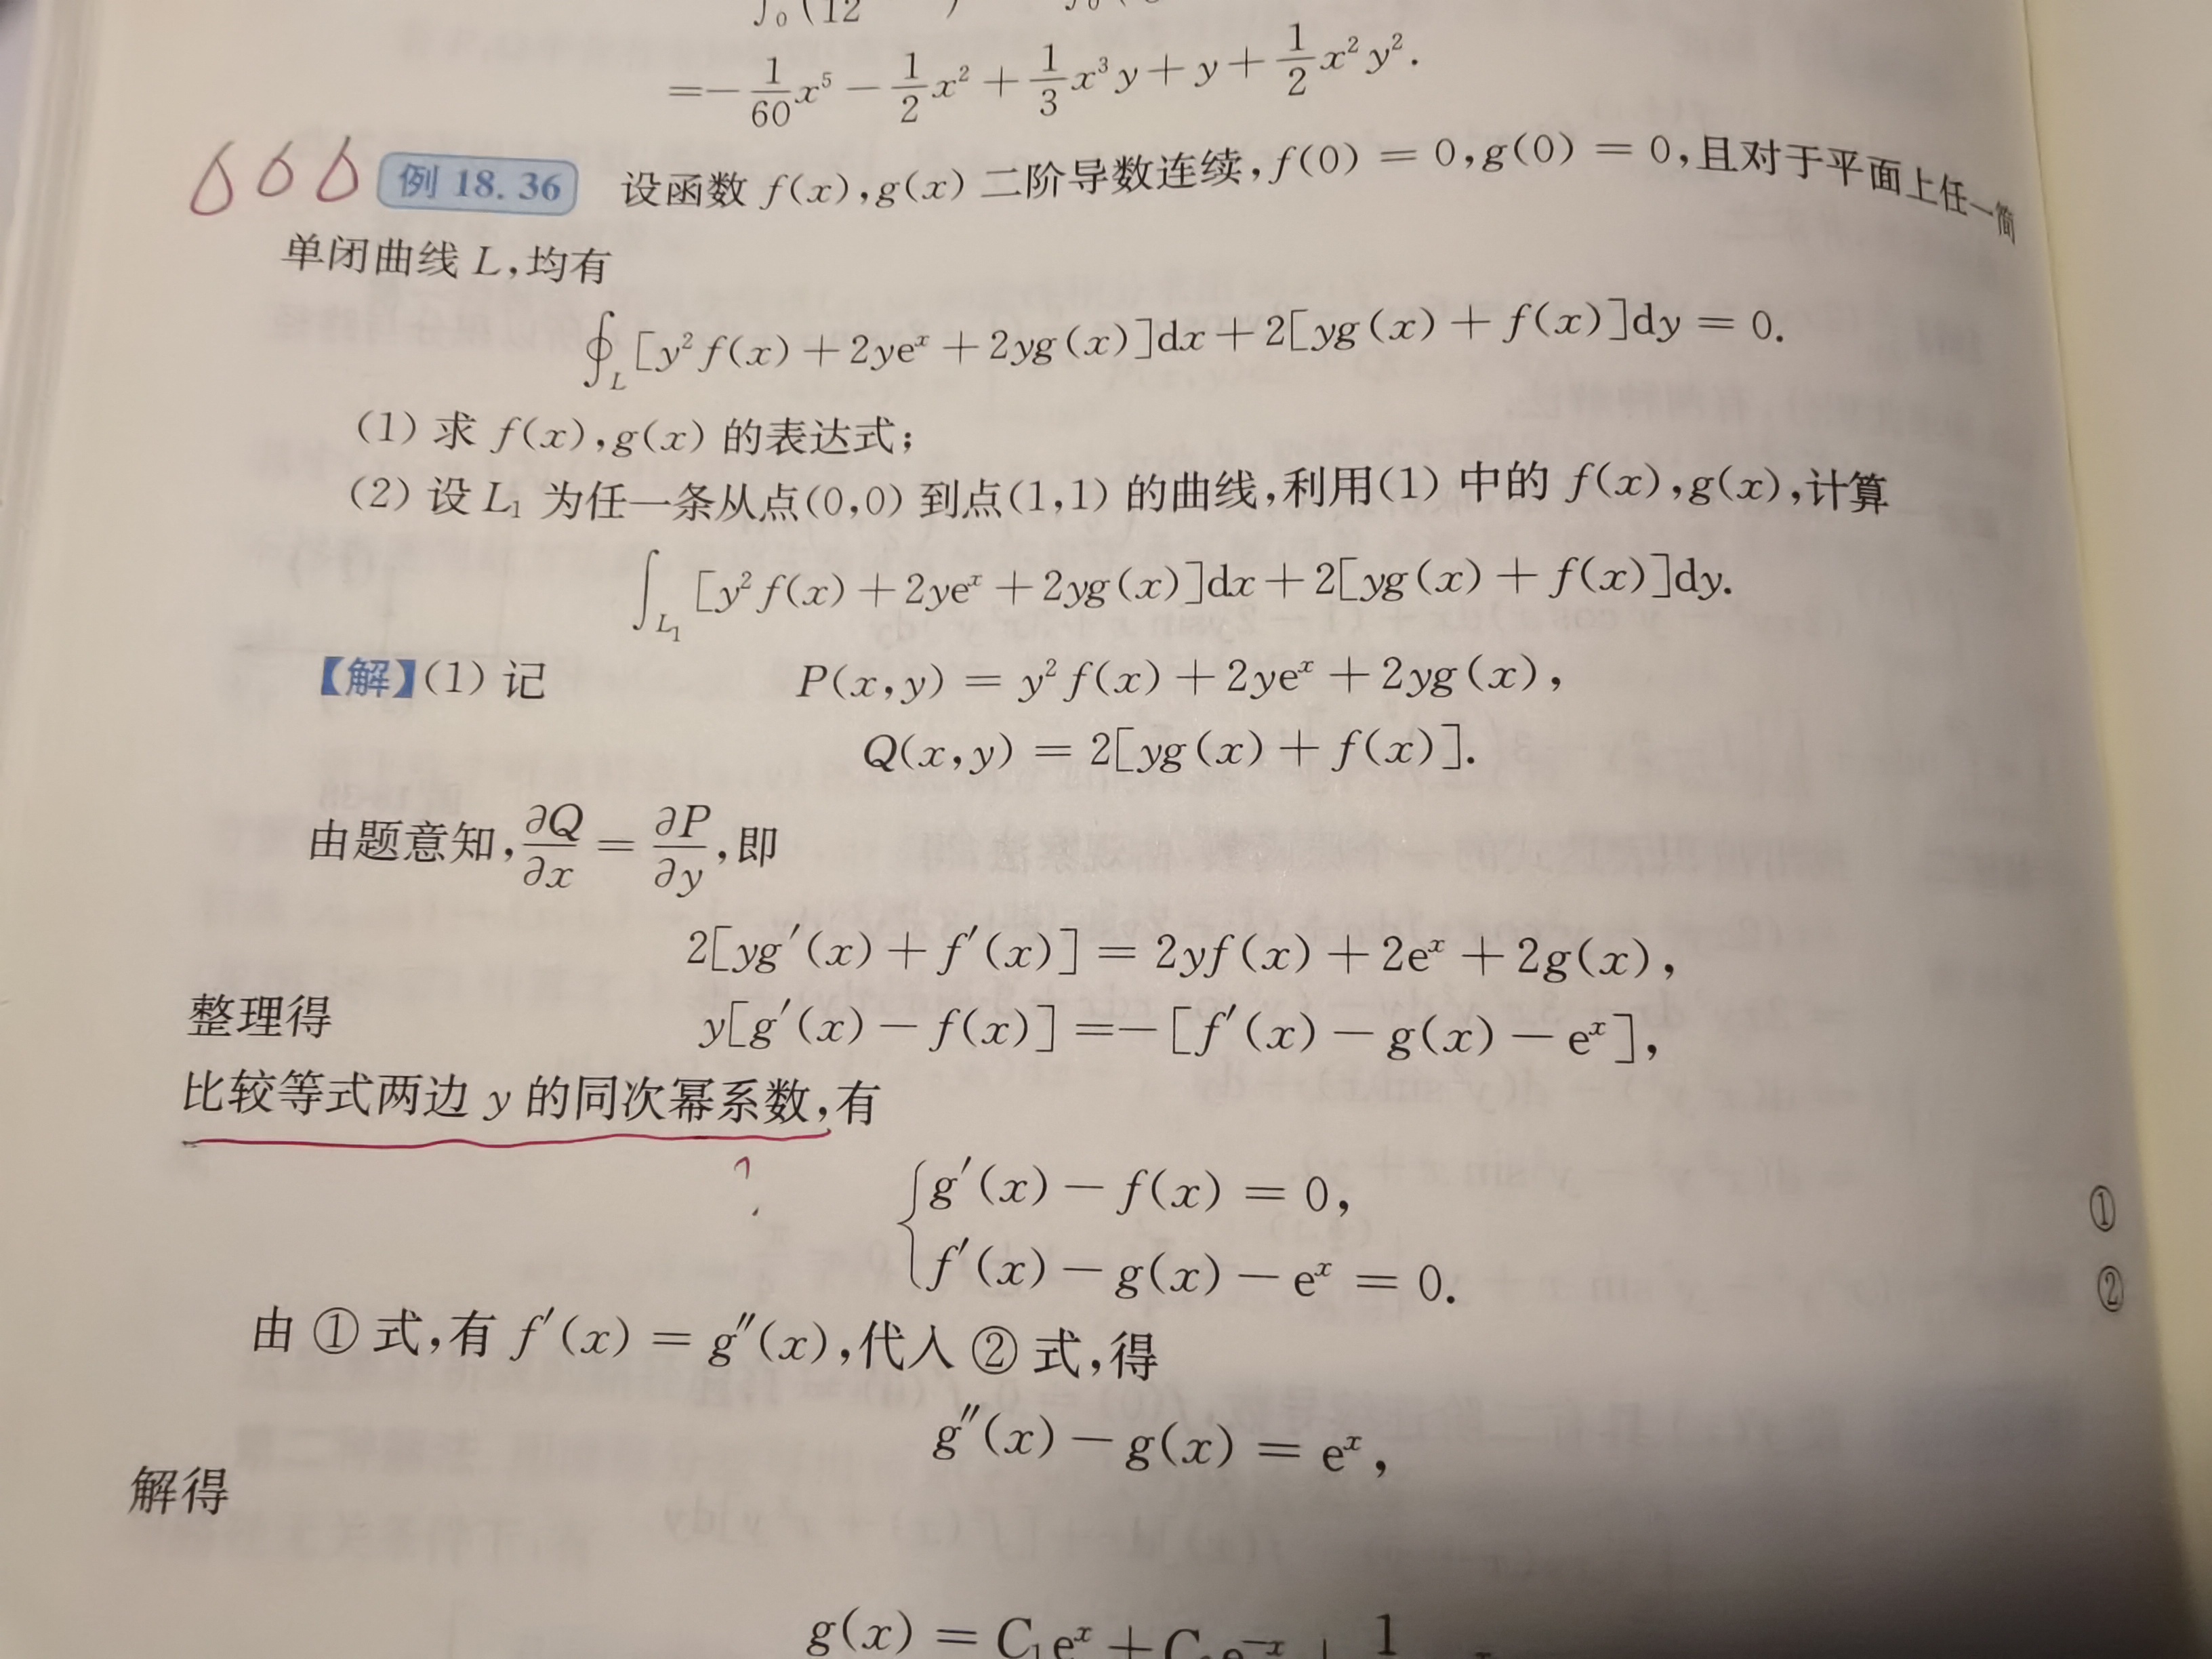 ∫₀(12
=-1/60 x⁵ - 1/2 x² + 1/3 x³y + y + 1/2 x²y².
666 例 18.36 设函数 f(x),g(x) 二阶导数连续,f(0) = 0,g(0) = 0,且对于平面上任一简
单闭曲线 L,均有
∮_L [y²f(x) + 2yeˣ + 2yg(x)]dx + 2[yg(x) + f(x)]dy = 0.
(1) 求 f(x),g(x) 的表达式;
(2) 设 L₁ 为任一条从点(0,0) 到点(1,1) 的曲线,利用(1) 中的 f(x),g(x),计算
∫_L₁ [y²f(x) + 2yeˣ + 2yg(x)]dx + 2[yg(x) + f(x)]dy.
【解】(1) 记 P(x,y) = y²f(x) + 2yeˣ + 2yg(x),
Q(x,y) = 2[yg(x) + f(x)].
由题意知,∂Q/∂x = ∂P/∂y,即
2[yg′(x) + f′(x)] = 2yf(x) + 2eˣ + 2g(x),
整理得 y[g′(x) - f(x)] =-[f′(x) - g(x) - eˣ],
比较等式两边 y 的同次幂系数,有
?
{ g′(x) - f(x) = 0, ①
f′(x) - g(x) - eˣ = 0. ②
由 ① 式,有 f′(x) = g″(x),代入 ② 式,得
g″(x) - g(x) = eˣ,
解得
g(x) = C₁eˣ + C e⁻ˣ + 1